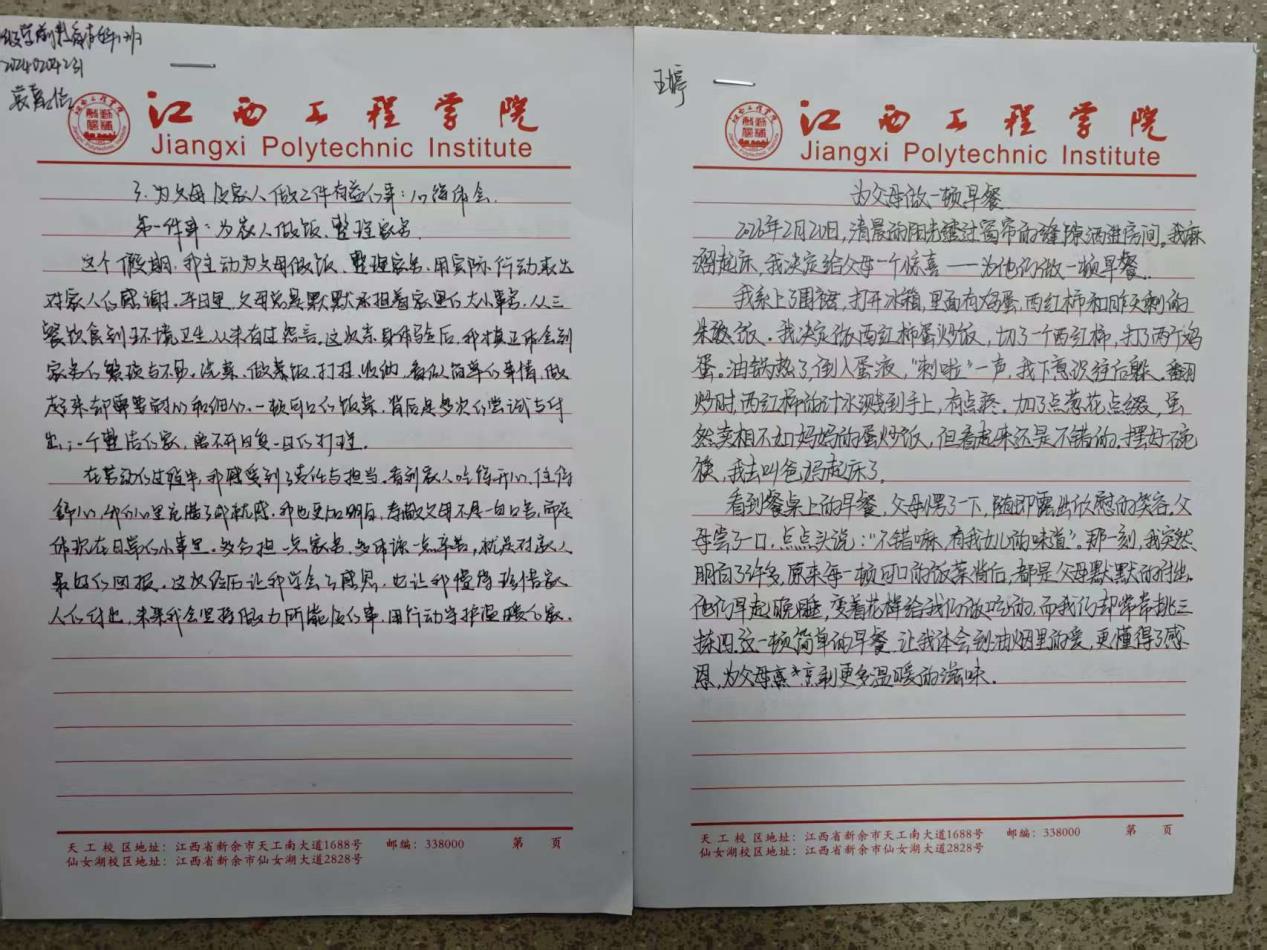 20240204231
江西工程学院
Jiangxi Polytechnic Institute
3.为父母及家人做三件有益的事:心得体会.
第一件事:为家人做饭、整理家务.
这个假期,我主动为父母做饭、整理家务,用实际行动表达
对家人的感谢。平日里,父母总是默默承担着家里的大小事务,从三
餐饮食到环境卫生,从未有过怨言。这次亲身体验后,我才真正体会到
家务的繁琐与不易。洗菜、做菜饭、打扫、收纳,看似简单的事情,做
起来却需要耐心和细心。一顿可口的饭菜,背后是多次的尝试与付
出;一个整洁的家,离不开日复一日的打理。
在劳动的过程中,我感受到了责任与担当。看到家人吃得开心、住得
舒心,我的心里充满了成就感。我也更加明白,孝敬父母不是一句口号,而是
体现在日常的小事里。多分担一点家务,多体谅一点辛苦,就是对家人
最好的回报。这次经历让我学会了感恩,也让我懂得珍惜家
人的付出,未来我会坚持做力所能及的事,用行动守护温暖的家.
天工校区地址:江西省新余市天工南大道1688号 邮编:338000 第 页
仙女湖校区地址:江西省新余市仙女湖大道2828号
王婷
江西工程学院
Jiangxi Polytechnic Institute
为父母做一顿早餐
2026年2月20日,清晨的阳光透过窗帘的缝隙洒进房间,我麻
溜起床,我决定给父母一个惊喜——为他们做一顿早餐.
我系上了围裙,打开冰箱,里面有鸡蛋,西红柿和昨天剩的
米饭。我决定做西红柿蛋炒饭,切了一个西红柿,打了两个鸡
蛋。油锅热了,倒入蛋液,“刺啦”一声,我下意识往后躲。翻
炒时,西红柿的汁水溅到手上,有点疼。加了点葱花点缀,虽
然卖相不如妈妈的蛋炒饭,但看起来还是不错的.摆好碗
筷,我去叫爸妈起床了。
看到餐桌上的早餐,父母愣了一下,随即露出欣慰的笑容.父
母尝了一口,点点头说:“不错嘛,有我女儿的味道”。那一刻,我突然
明白了许多,原来每一顿可口的饭菜背后,都是父母默默的付出。
他们早起晚睡,变着花样给我们做吃的,而我们却常常挑三
拣四.这一顿简单的早餐,让我体会到油烟里的爱,更懂得了感
恩,为父母烹饪更多温暖的滋味。
天工校区地址:江西省新余市天工南大道1688号 邮编:338000 第 页
仙女湖校区地址:江西省新余市仙女湖大道2828号